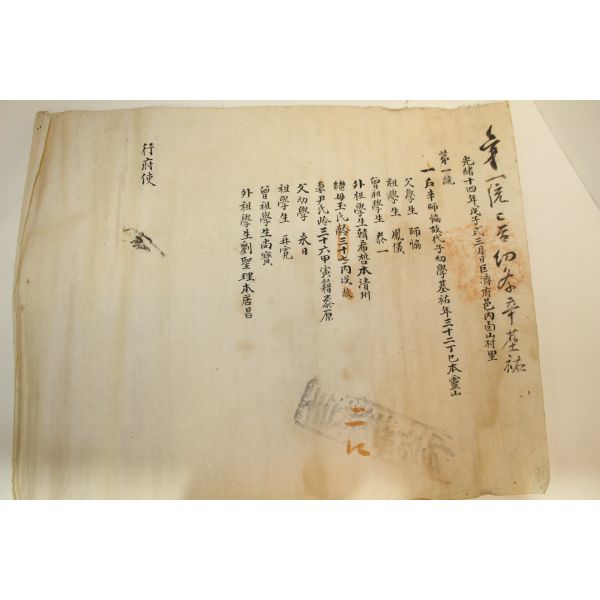 第一統二戶幼學辛基祐
光緒十四年戊子式三月日巨濟府邑內面山村里
第一統
一戶辛師協故代子幼學基祐年三十二丁巳本靈山
父學生師協
祖學生鳳儀
曾祖學生泰一
外祖學生韓希哲本淸州
繼母玉氏齡三十七丙戌故
妻尹氏齡三十六甲寅籍坡原
父幼學永日
祖學生再寬
曾祖學生尚賓
外祖學生劉聖理本居昌
行府使